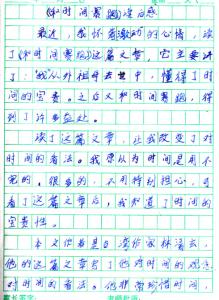 《和时间赛跑》读后感
最近,我怀着激动的心情,读
了《和时间赛跑》这篇文章,它主要讲
了:我从外祖母去世中,懂得了时
间的宝贵。之后又和时间赛跑,得
到了许多益处。
读了这篇文章,让我改变了对
时间的看法。我原以为时间是用不
完的,很多的,不用特别担心,可
看了这篇文章后,我知道了时间的
宝贵性。
本文作者是台湾作家林清玄,
他的这篇文章写了他对时间的观念
对时间的看法。他非常珍惜时间,
家长签字: 老师批语: